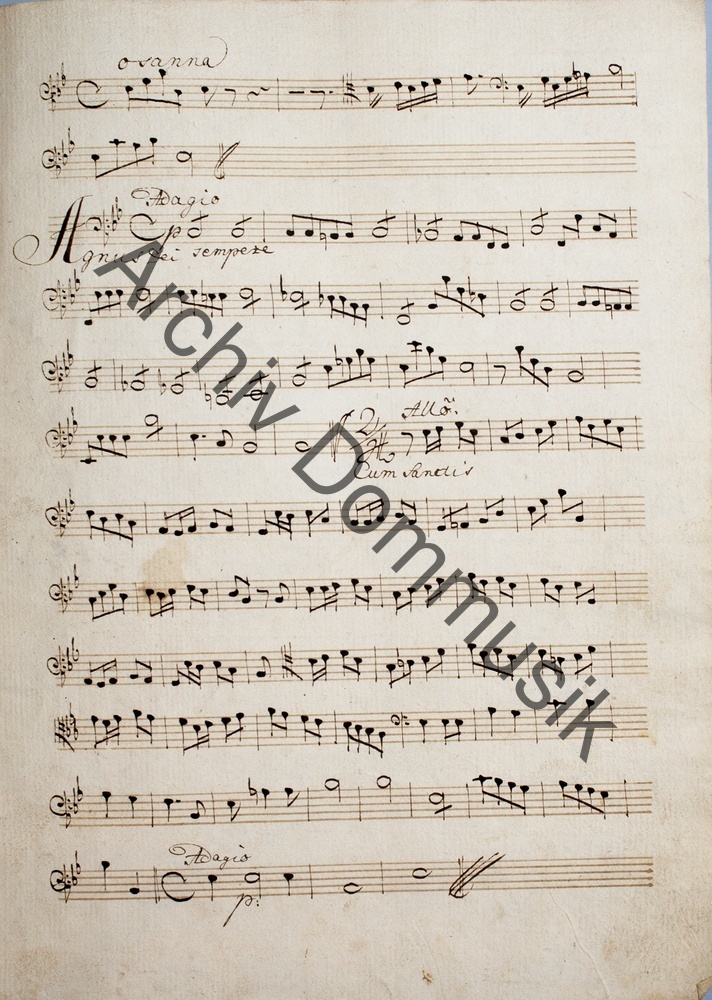 osanna
Adagio
p
Agnus dei sempere
All:ō.
2/4
Cum Sanctis
Adagio
p:
Archiv Dommusik